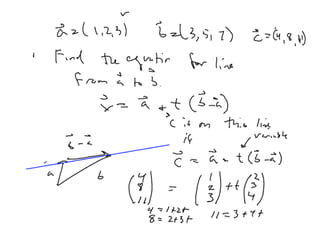 a⃗ = (1,2,3) b⃗ = (3,5,7) c⃗ = (4,8,11)
Find the equation for line
from a⃗ to b⃗.
x⃗ = a⃗ + t(b⃗-a⃗)
c⃗ is on this line
variable
if
b⃗ - a⃗
c⃗ = a⃗ + t(b⃗-a⃗)
a b
(4 8 11) = (1 2 3) + t(2 3 4)
4 = 1+2t 11 = 3+4t
8 = 2+3t